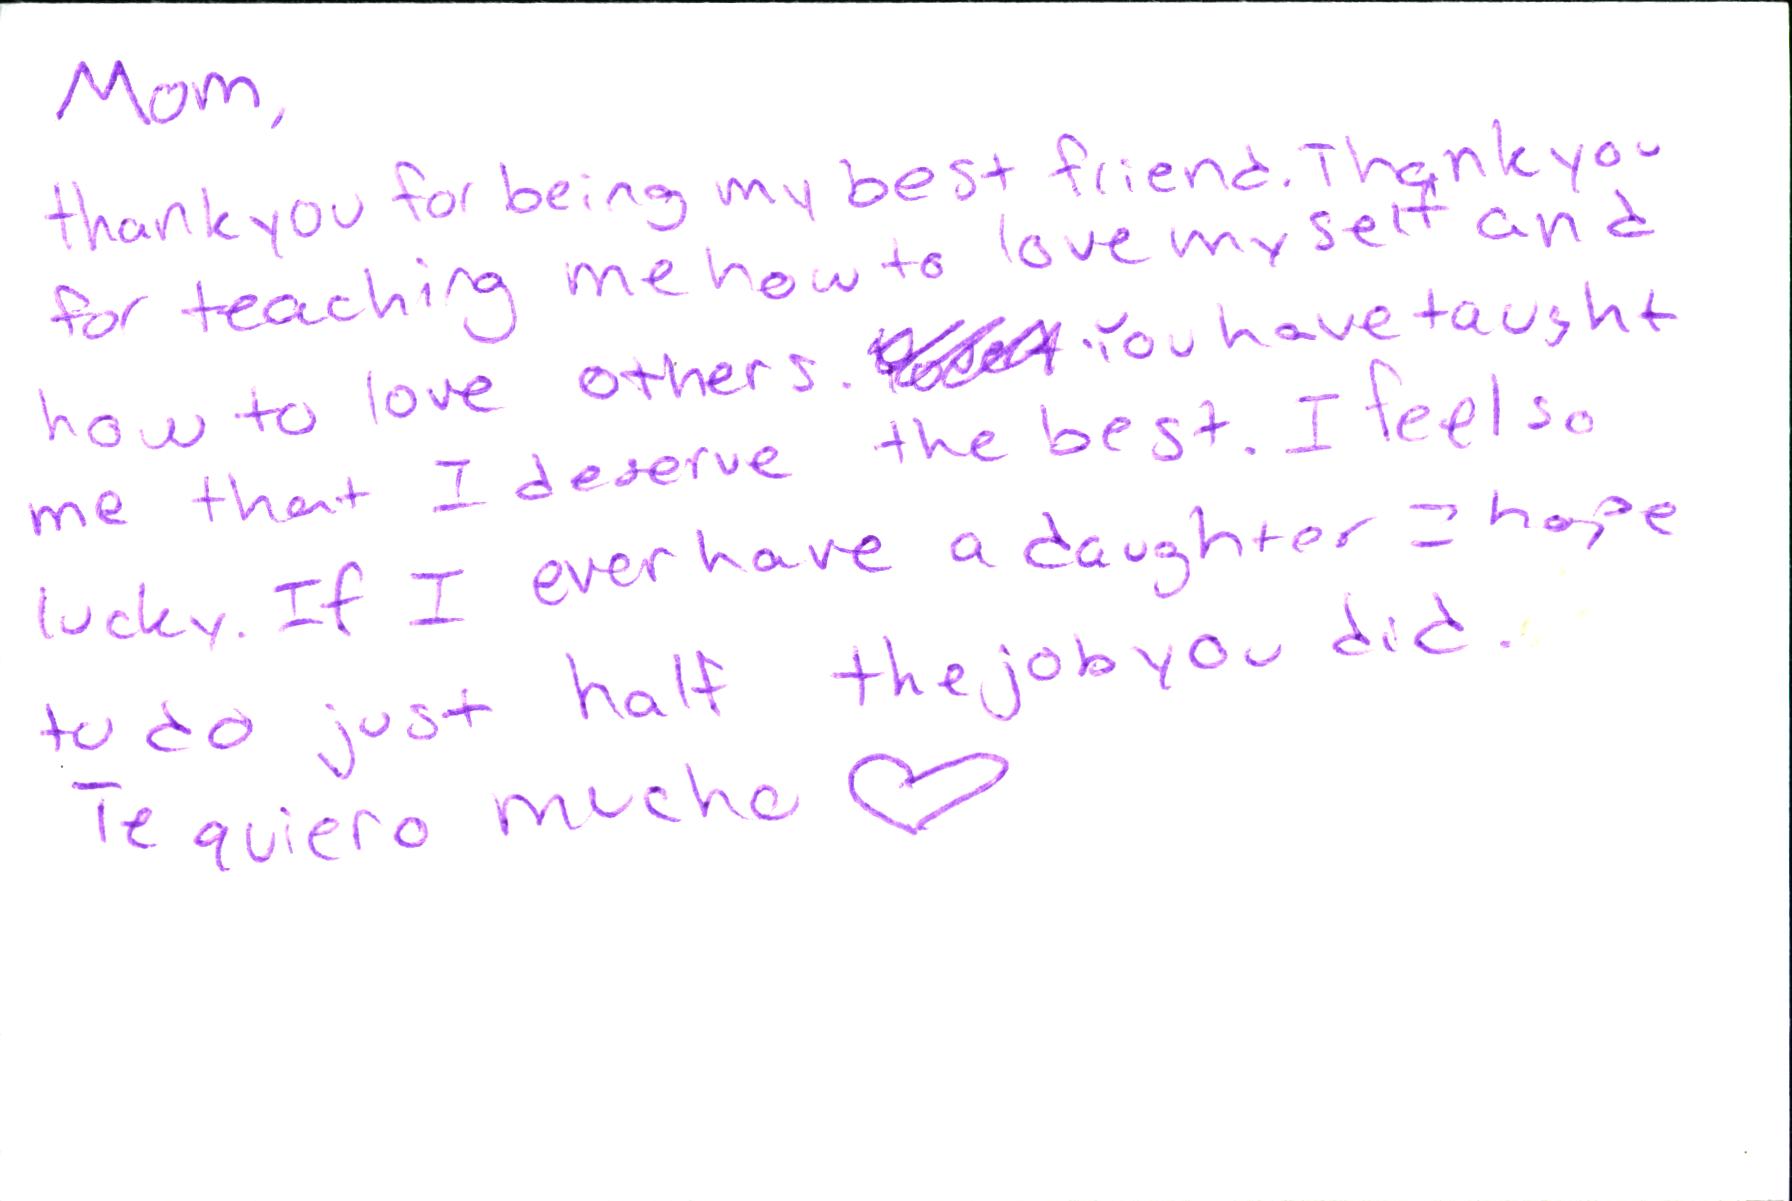 Mom,
thank you for being my best friend. Thank you
for teaching me how to love myself and
how to love others. You have taught
me that I deserve the best. I feel so
lucky. If I ever have a daughter I hope
to do just half the job you did.
Te quiero mucho